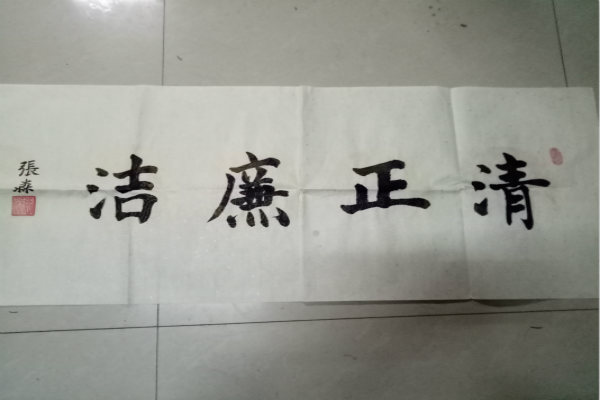 清正廉洁
張森